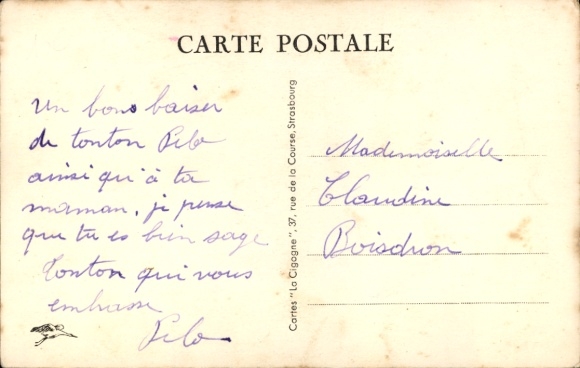 CARTE POSTALE
Un bons baiser
de tonton Pilo
ainsi qu'à ta
maman, je pense
que tu es bien sage
Tonton qui vous
embrasse
Pilo
Cartes "La Cigogne", 37, rue de la Course, Strasbourg
Mademoiselle
Claudine
Boisdron